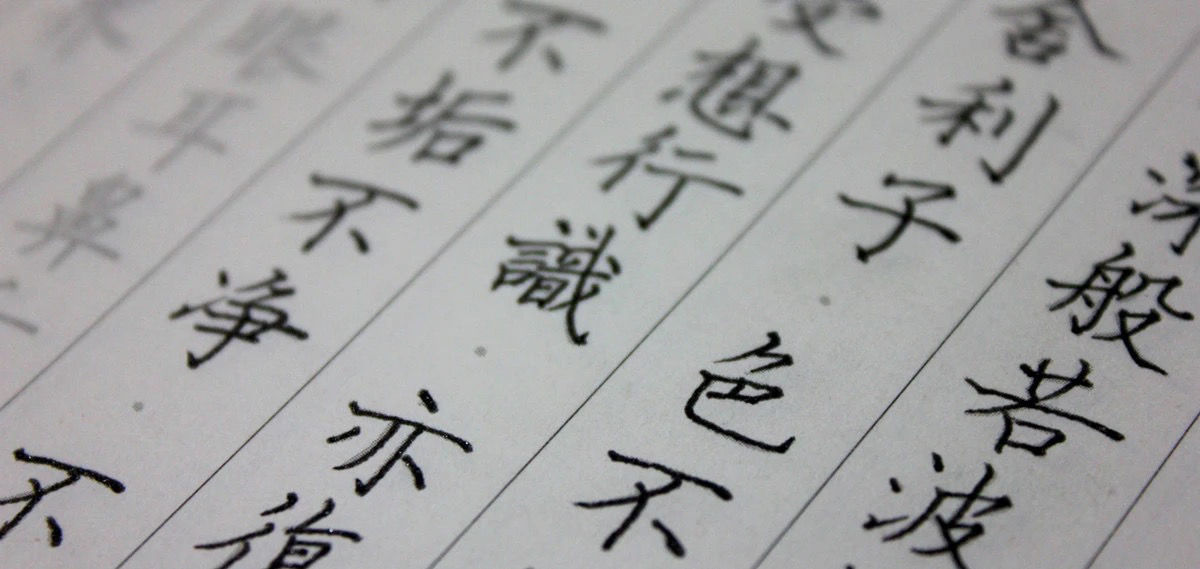 深般若波
舍利子色不
受想行識亦復
不垢不净不
眼耳鼻